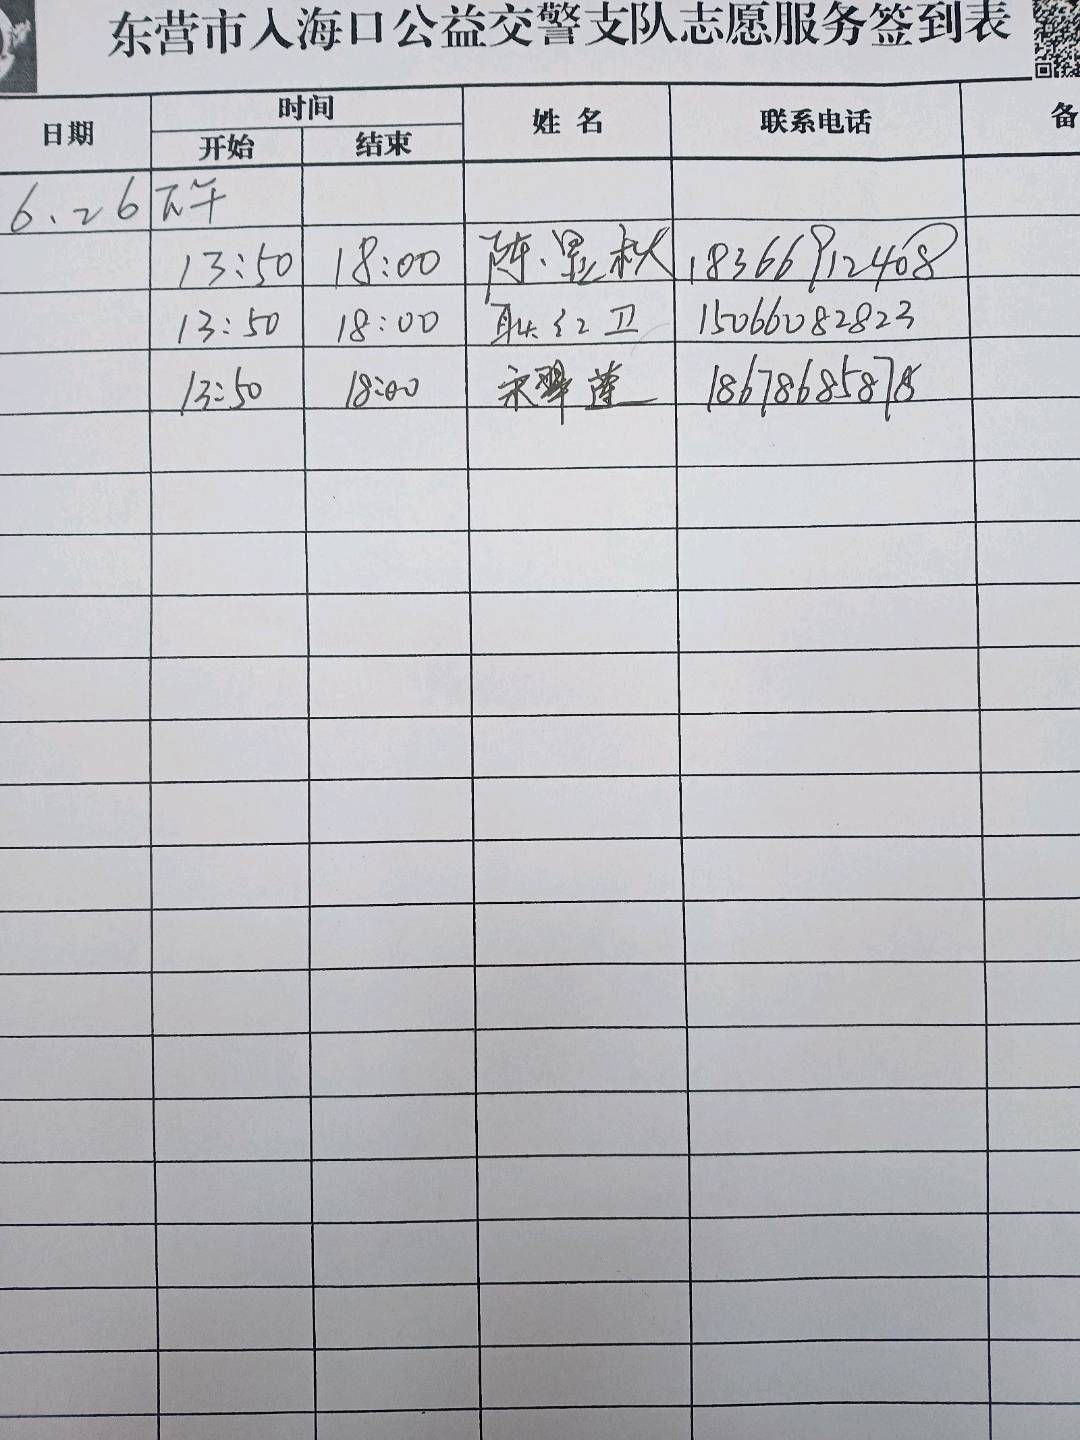 东营市入海口公益交警支队志愿服务签到表
日期 时间 姓名 联系电话 备
开始 结束
6.26 下午
13:50 18:00 陈显秋 18366912408
13:50 18:00 耿红卫 15066082823
13:50 18:00 宋翠莲 18678685878